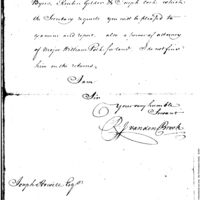 Byers, Reuben Golden & Joseph Cook which
the Secretary requests you will be pleased to
examine and report. also a power of attorney
of Major William Polk for land. I do not find
him on the returns.
I am
Sir
Your very humble
Servant
J. Vanden Broek
Joseph Howell Esqr.